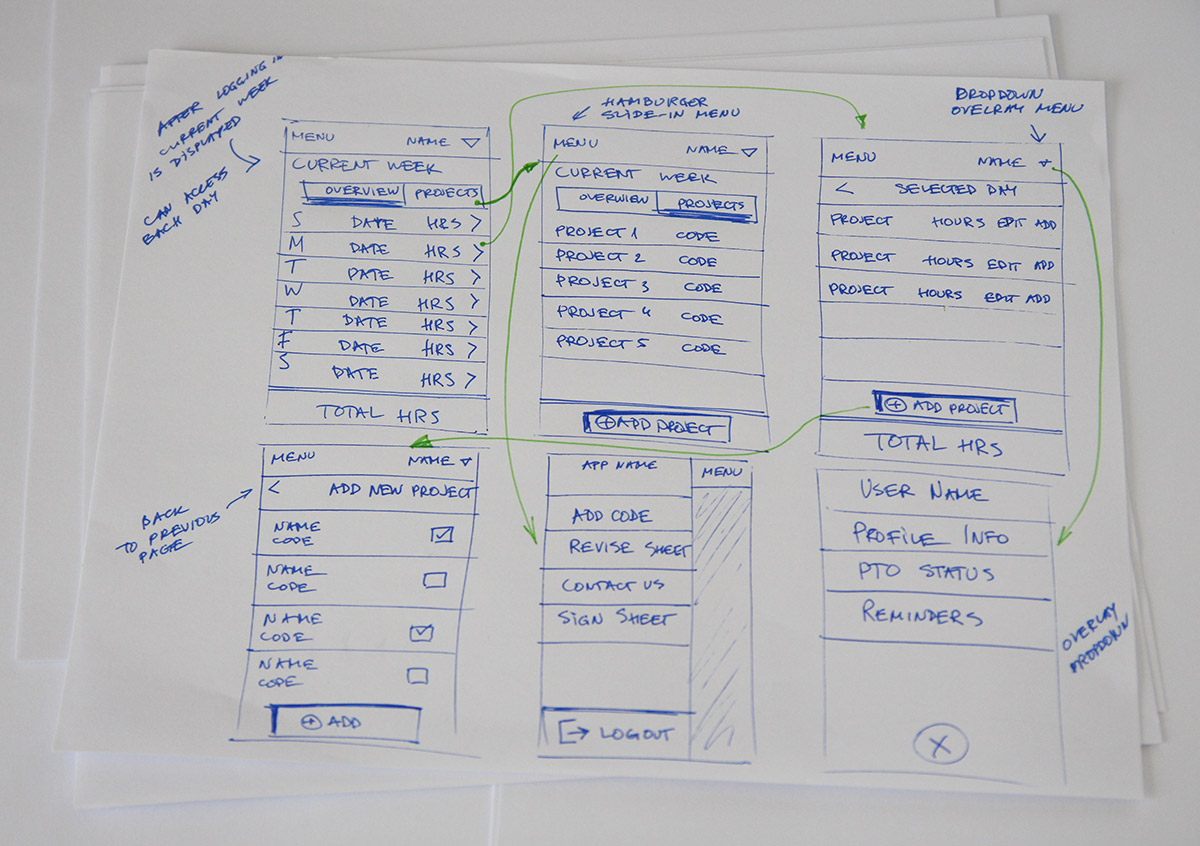 AFTER LOGGING IN
CURRENT WEEK
IS DISPLAYED
CAN ACCESS
BACK DAY
MENU NAME
CURRENT WEEK
OVERVIEW PROJECTS
S DATE HRS >
M DATE HRS >
T DATE HRS >
W DATE HRS >
T DATE HRS >
F DATE HRS >
S DATE HRS >
TOTAL HRS
HAMBURGER
SLIDE-IN MENU
MENU NAME
CURRENT WEEK
OVERVIEW PROJECTS
PROJECT 1 CODE
PROJECT 2 CODE
PROJECT 3 CODE
PROJECT 4 CODE
PROJECT 5 CODE
+ ADD PROJECT
DROPDOWN
OVELRAY MENU
MENU NAME
< SELECTED DAY
PROJECT HOURS EDIT ADD
PROJECT HOURS EDIT ADD
PROJECT HOURS EDIT ADD
+ ADD PROJECT
TOTAL HRS
BACK
TO PREVIOUS
PAGE
MENU NAME
< ADD NEW PROJECT
NAME
CODE
NAME
CODE
NAME
CODE
NAME
CODE
+ ADD
APP NAME MENU
ADD CODE
REVISE SHEET
CONTACT US
SIGN SHEET
LOGOUT
USER NAME
PROFILE INFO
PTO STATUS
REMINDERS
X
OVERLAY
DROPDOWN